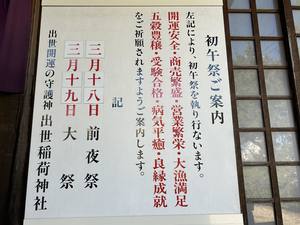 初午祭ご案内
左記により、初午祭を執り行ないます。
開運安全・商売繁盛・営業繁栄・大漁満足
五穀豊穣・受験合格・病気平癒・良縁成就
をご祈願されますようご案内します。
記
三月十八日 前夜祭
三月十九日 大祭
出世開運の守護神 出世稲荷神社